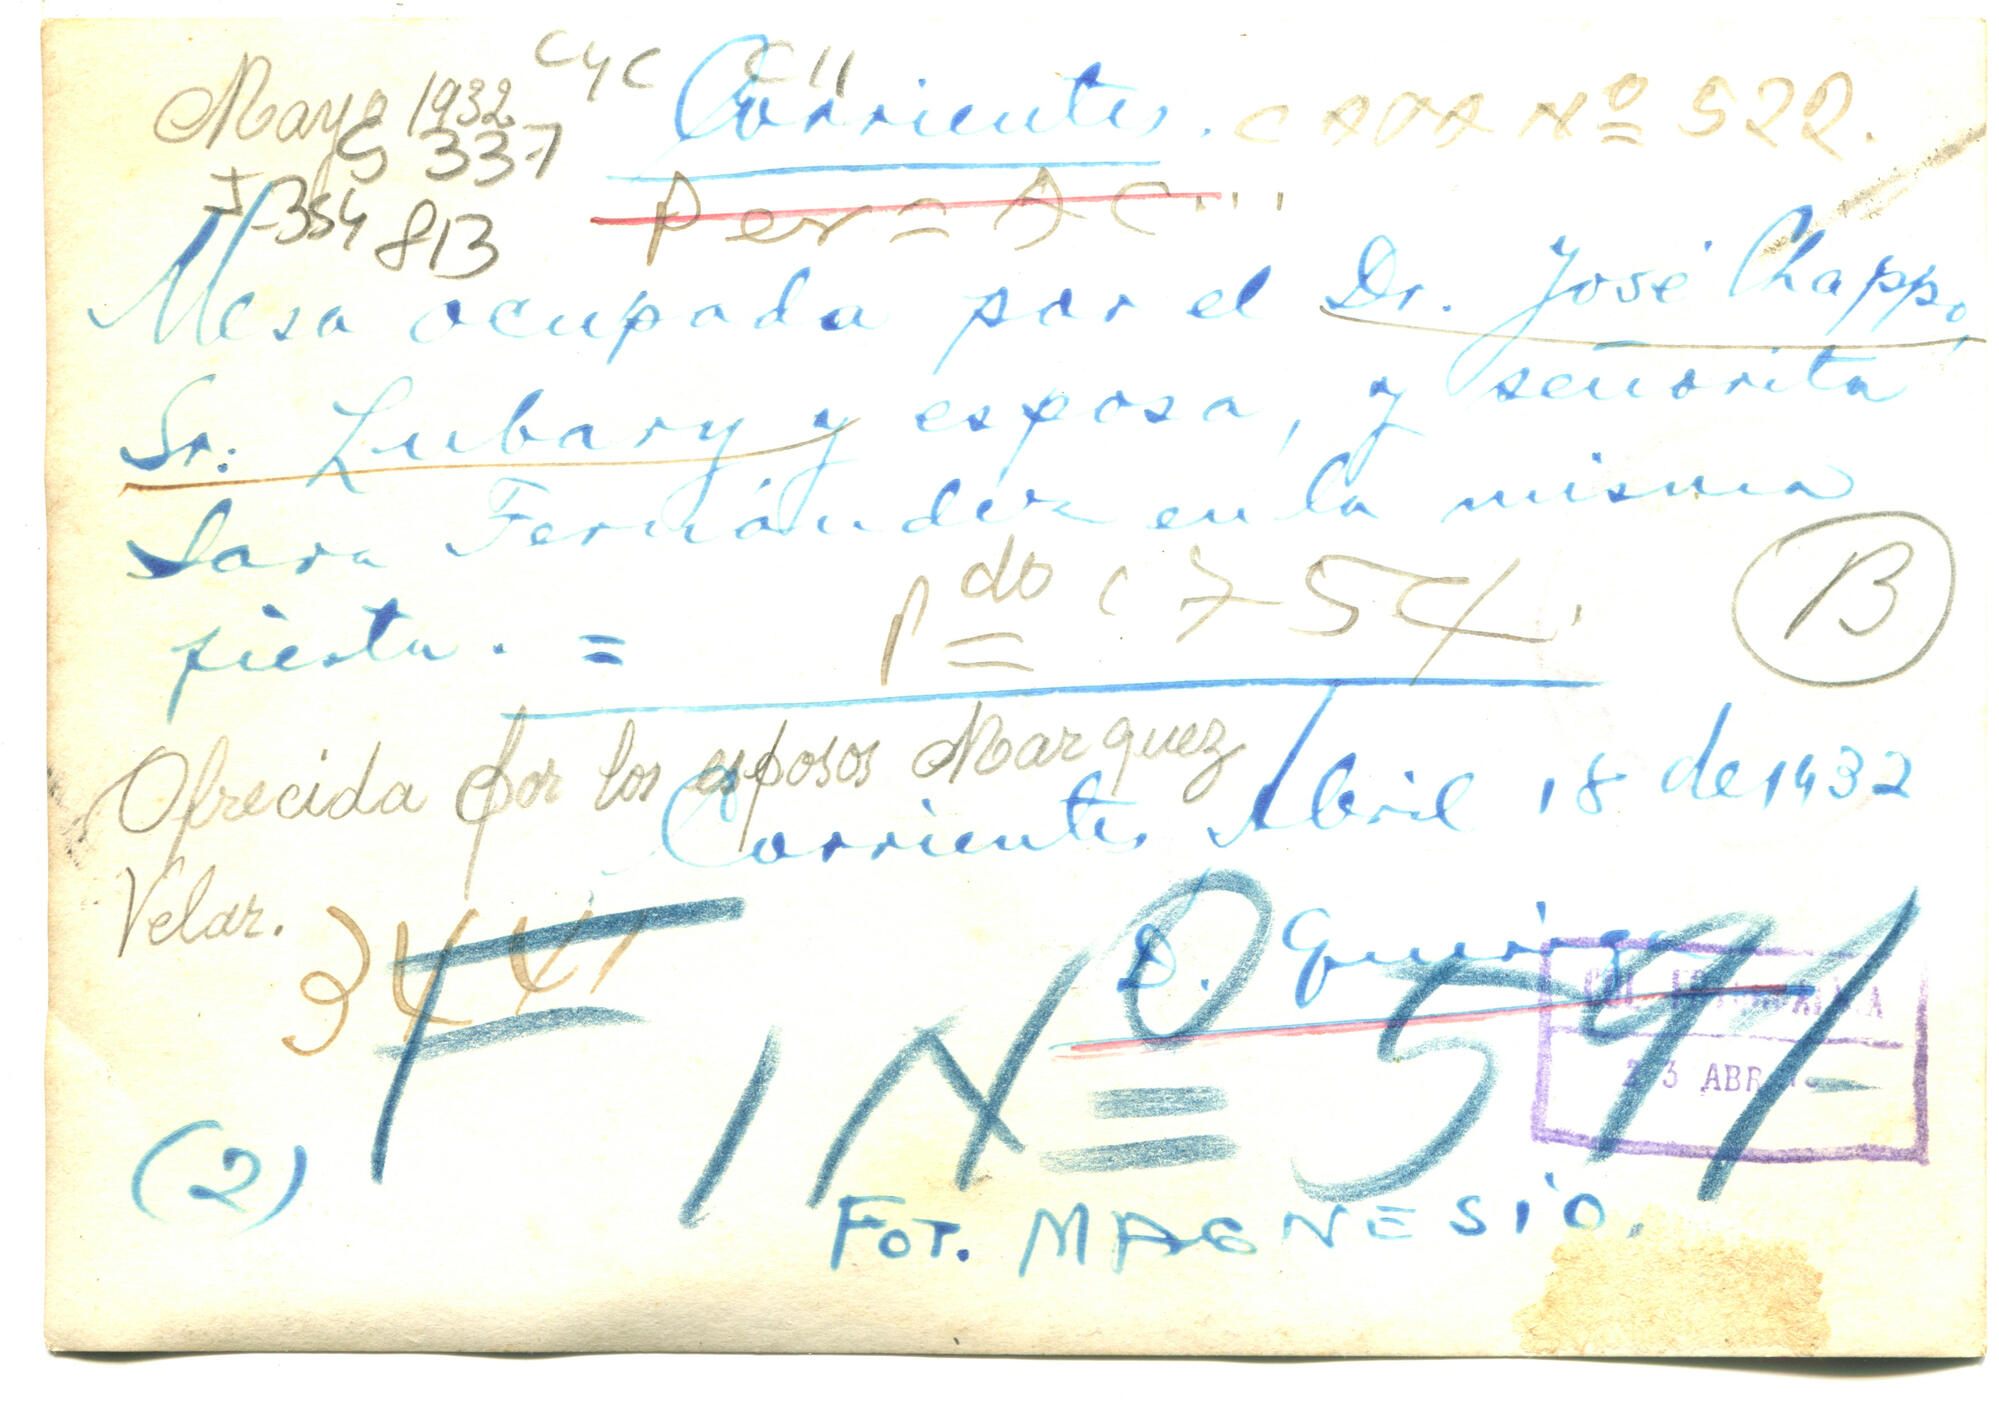 CyC C11
Mayo 1932 Corrientes. CAJA Nº 522.
S 337
J-354 813
Mesa ocupada por el Dr. José Chappo
Sr. Lubary y esposa, y señorita
Sara Fernández en la misma
fiesta. =
B
Ofrecida por los esposos Marquez
Velar.
Corrientes Abril 18 de 1932
344
D. Quiroga
F 1 Nº 591
23 ABR
(2)
FOT. MAGNESIO.